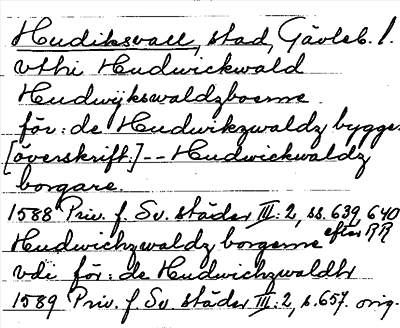 Hudiksvall, stad, Gävleb. l.
vthi Hudwickwald
Hudwijkswaldzboerne
för: de Hudwikzwaldz bygge
[överskrift:] -- Hudwickwaldz
borgare.
1588 Priv. f. Sv. städer III:2, ss. 639, 640
Hudwichzwaldz borgerne efter RR
vdi för: de Hudwichzwaldtr
1589 Priv. f. Sv. städer III:2, s. 657. orig.